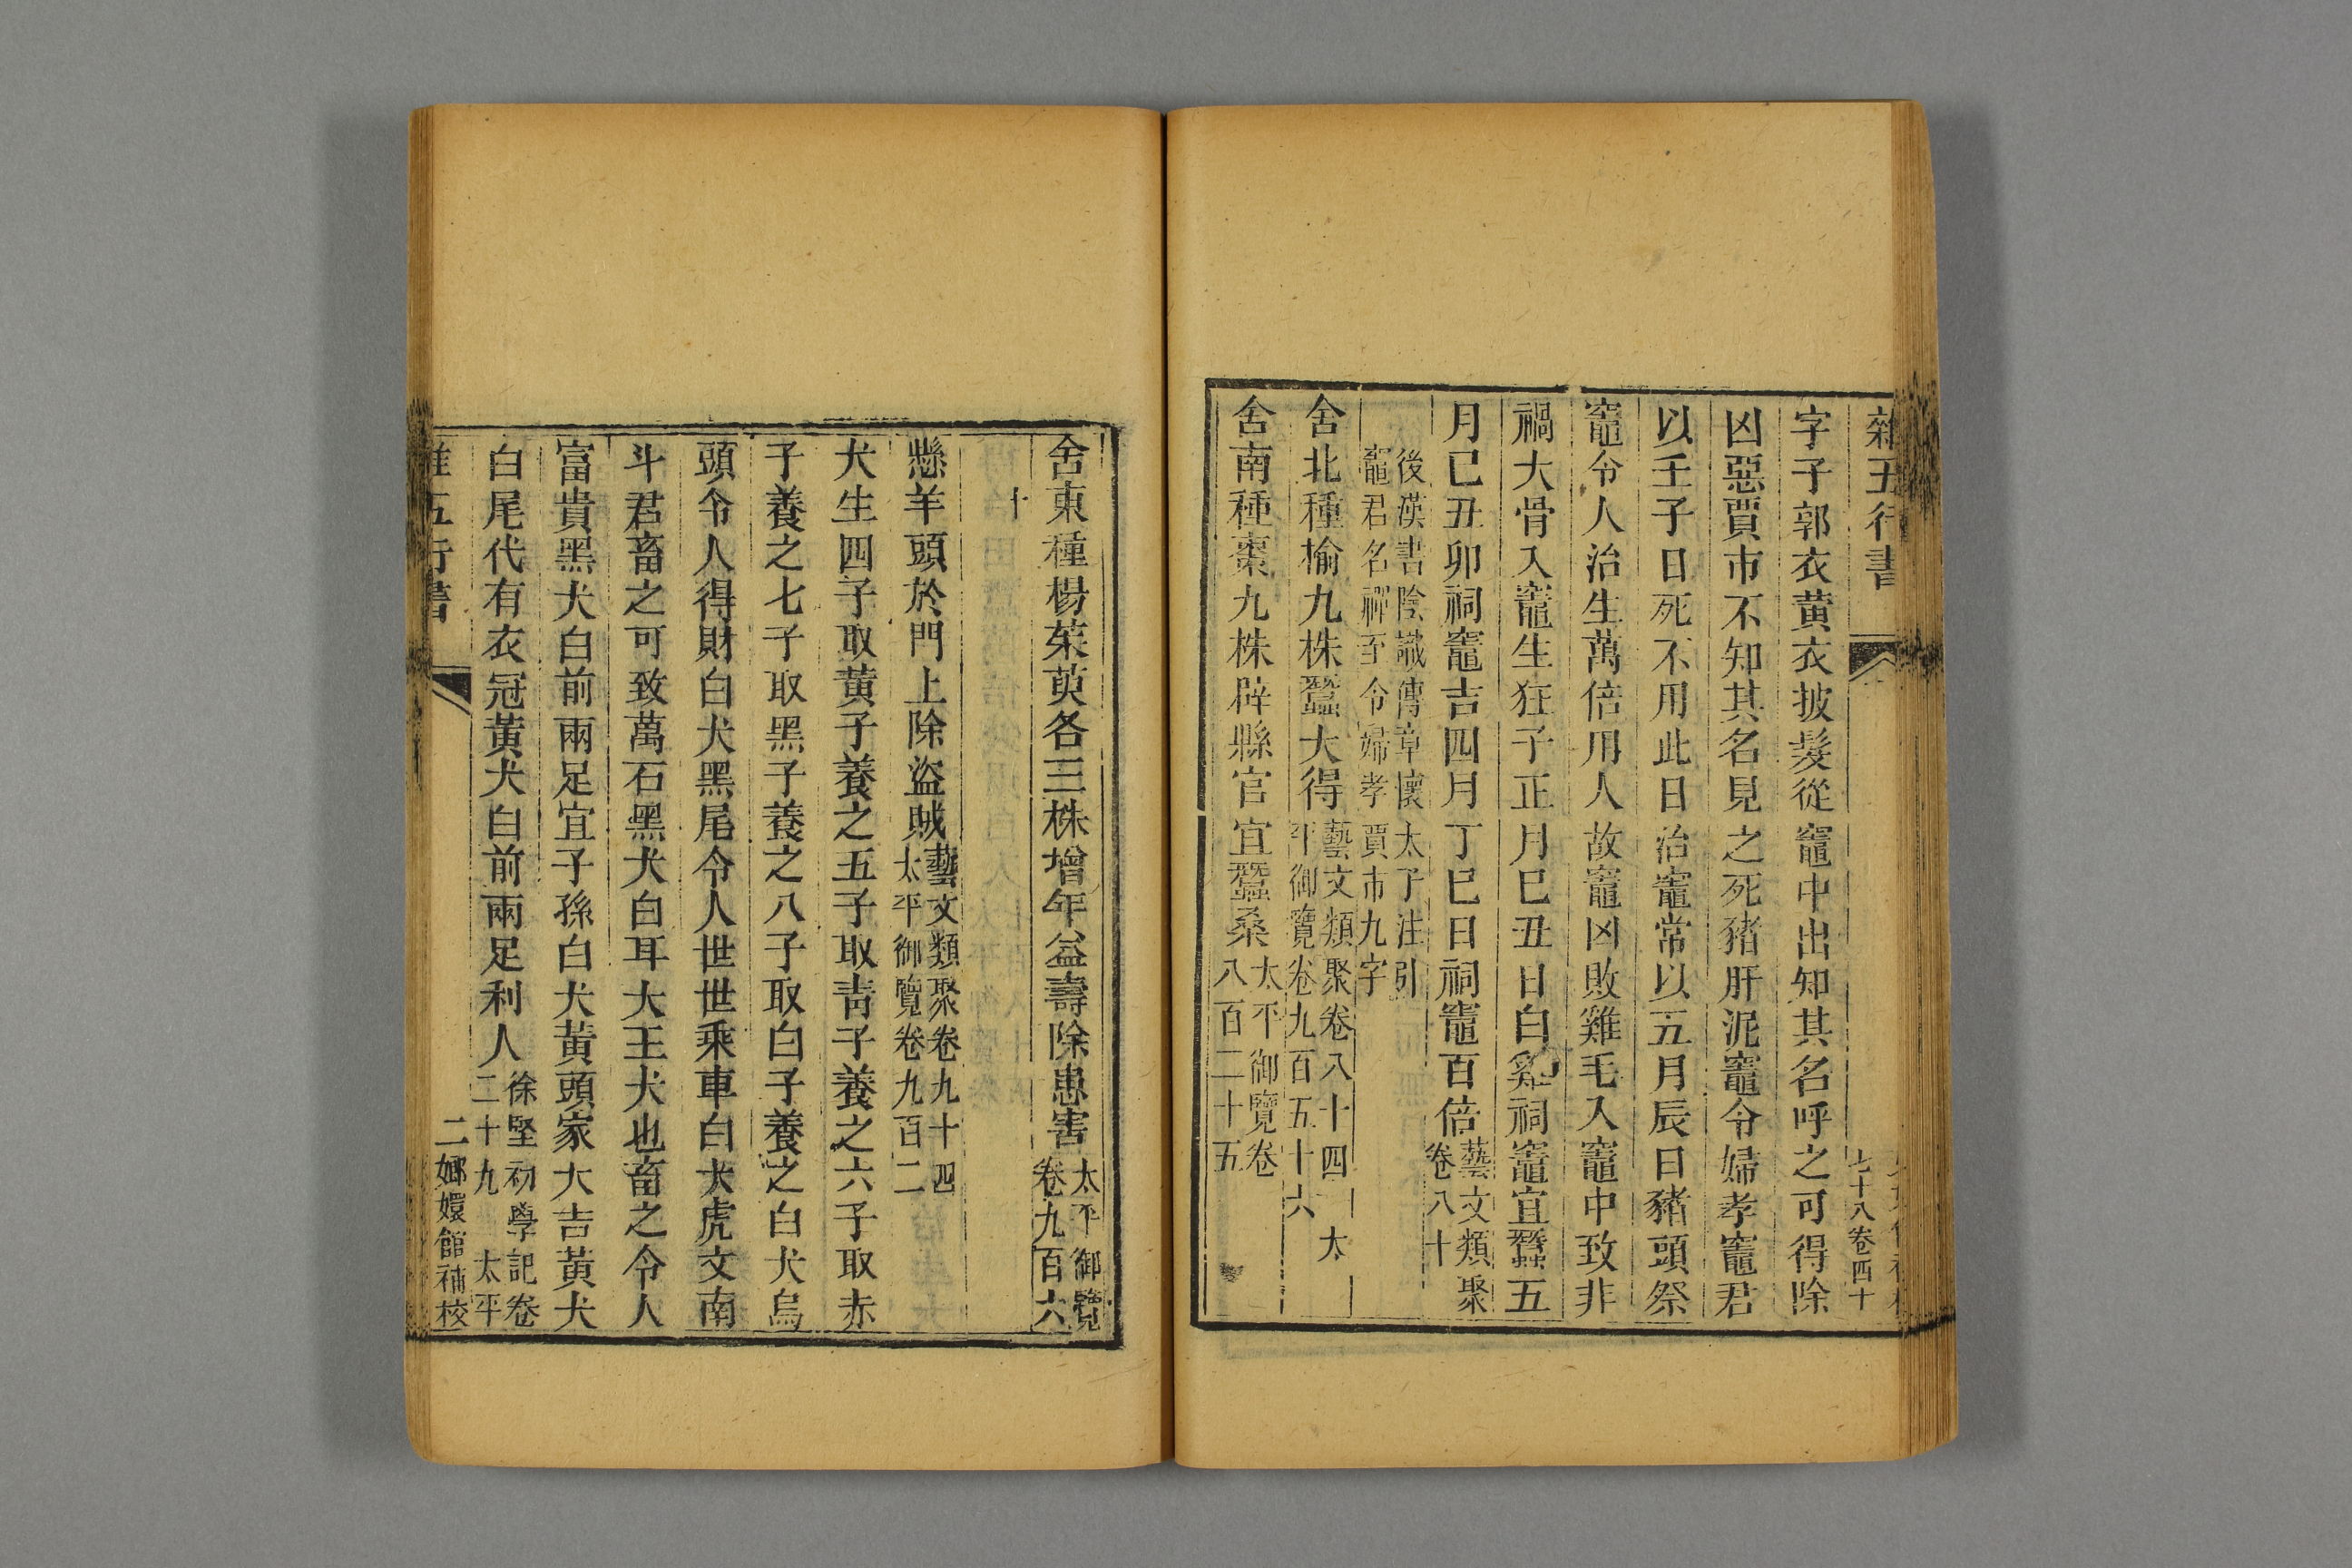 雜五行書
七十八卷四十
字子郭衣黄衣披髮從竈中出知其名呼之可得除
凶惡賈市不知其名見之死豬肝泥竈令婦孝竈君
以壬子日死不用此日治竈常以五月辰日豬頭祭
竈令人治生萬倍用人故竈凶敗雞毛入竈中致非
禍大骨入竈生狂子正月巳丑日白雞祠竈宜蠶五
月巳丑卯祠竈吉四月丁巳日祠竈百倍藝文類聚
卷八十
後漢書陰識傳章懷太子注引
竈君名禪至令婦孝賈市九字
舍北種榆九株蠶大得藝文類聚卷八十四 太
平御覽卷九百五十六
舍南種棗九株辟縣官宜蠶桑太平御覽卷
八百二十五
舍東種楊茱萸各三株增年益壽除患害太平御覽
卷九百六
十
懸羊頭於門上除盜賊藝文類聚卷九十四
太平御覽卷九百二
犬生四子取黄子養之五子取青子養之六子取赤
子養之七子取黑子養之八子取白子養之白犬烏
頭令人得財白犬黑尾令人世世乘車白犬虎文南
斗君畜之可致萬石黑犬白耳大王犬也畜之令人
富貴黑犬白前兩足宜子孫白犬黄頭家大吉黄犬
白尾代有衣冠黄犬白前兩足利人徐堅初學記卷
二十九 太平
雜五行書
二 嫏嬛館補校